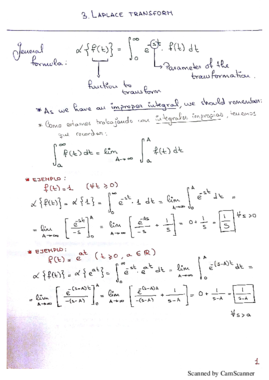 3. LAPLACE TRANSFORM
General formula: α{f(t)} = ∫₀^∞ e^{-st} · f(t) dt
Parameter of the transformation.
function to transform
* As we have an improper integral, we should remember:
* Como estamos trabajando con integrales impropias, tenemos
que recordar:
∫ₐ^∞ f(t) dt = lim_{A→∞} ∫ₐ^A f(t) dt
* EJEMPLO:
f(t) = 1 (∀t ≥ 0)
α{f(t)} = α{1} = ∫₀^∞ e^{-st} · 1 dt = lim_{A→∞} ∫₀^A e^{-st} dt =
= lim_{A→∞} [e^{-st}/-s]₀^A = lim_{A→∞} [e^{-As}/-s + 1/s] = 0 + 1/s = 1/s ∀s>0
* EJEMPLO:
f(t) = e^{at} (t ≥ 0, a ∈ ℝ)
α{f(t)} = α{e^{at}} = ∫₀^∞ e^{-st} · e^{at} dt = lim_{A→∞} ∫₀^A e^{-(s-A)t} dt =
= lim_{A→∞} [e^{-(s-A)t}/-(s-A)]₀^A = lim_{A→∞} [e^{-(s-A)A}/-(s-A) + 1/s-A] = 0 + 1/s-A = 1/s-A
∀s>a
1
Scanned by CamScanner